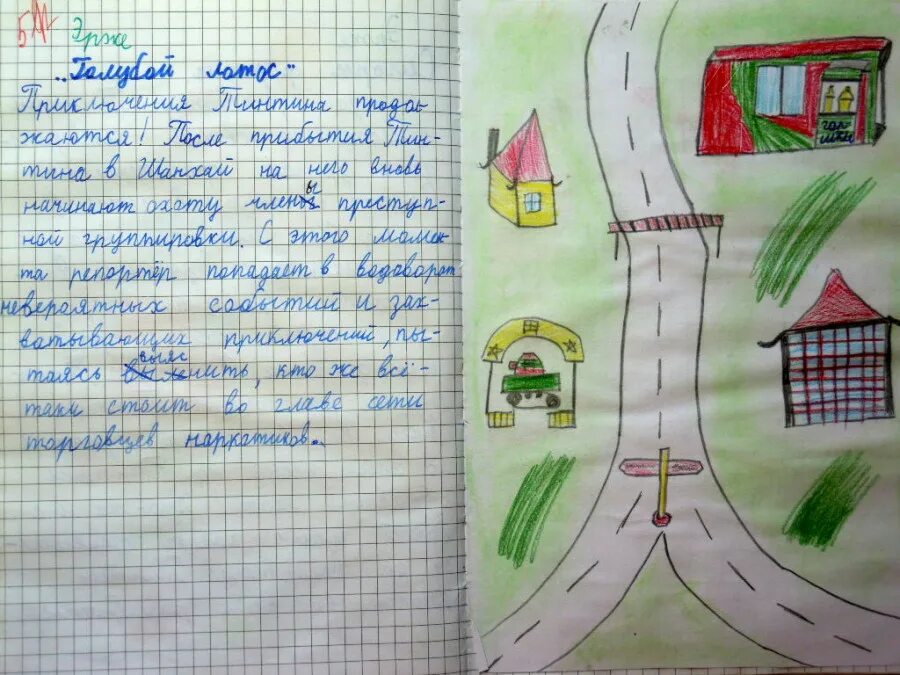 5
Эрже
„Голубой лотос"
Приключения Тинтина продол
жаются! После прибытия Тин-
тина в Шанхай на него вновь
начинают охоту члены преступ-
ной группировки. С этого момен
та репортёр попадает в водоворот
невероятных событий и зах-
ватывающих приключений, пы-
таясь выяснить, кто же всё-
таки стоит во главе сети
торговцев наркотиков...